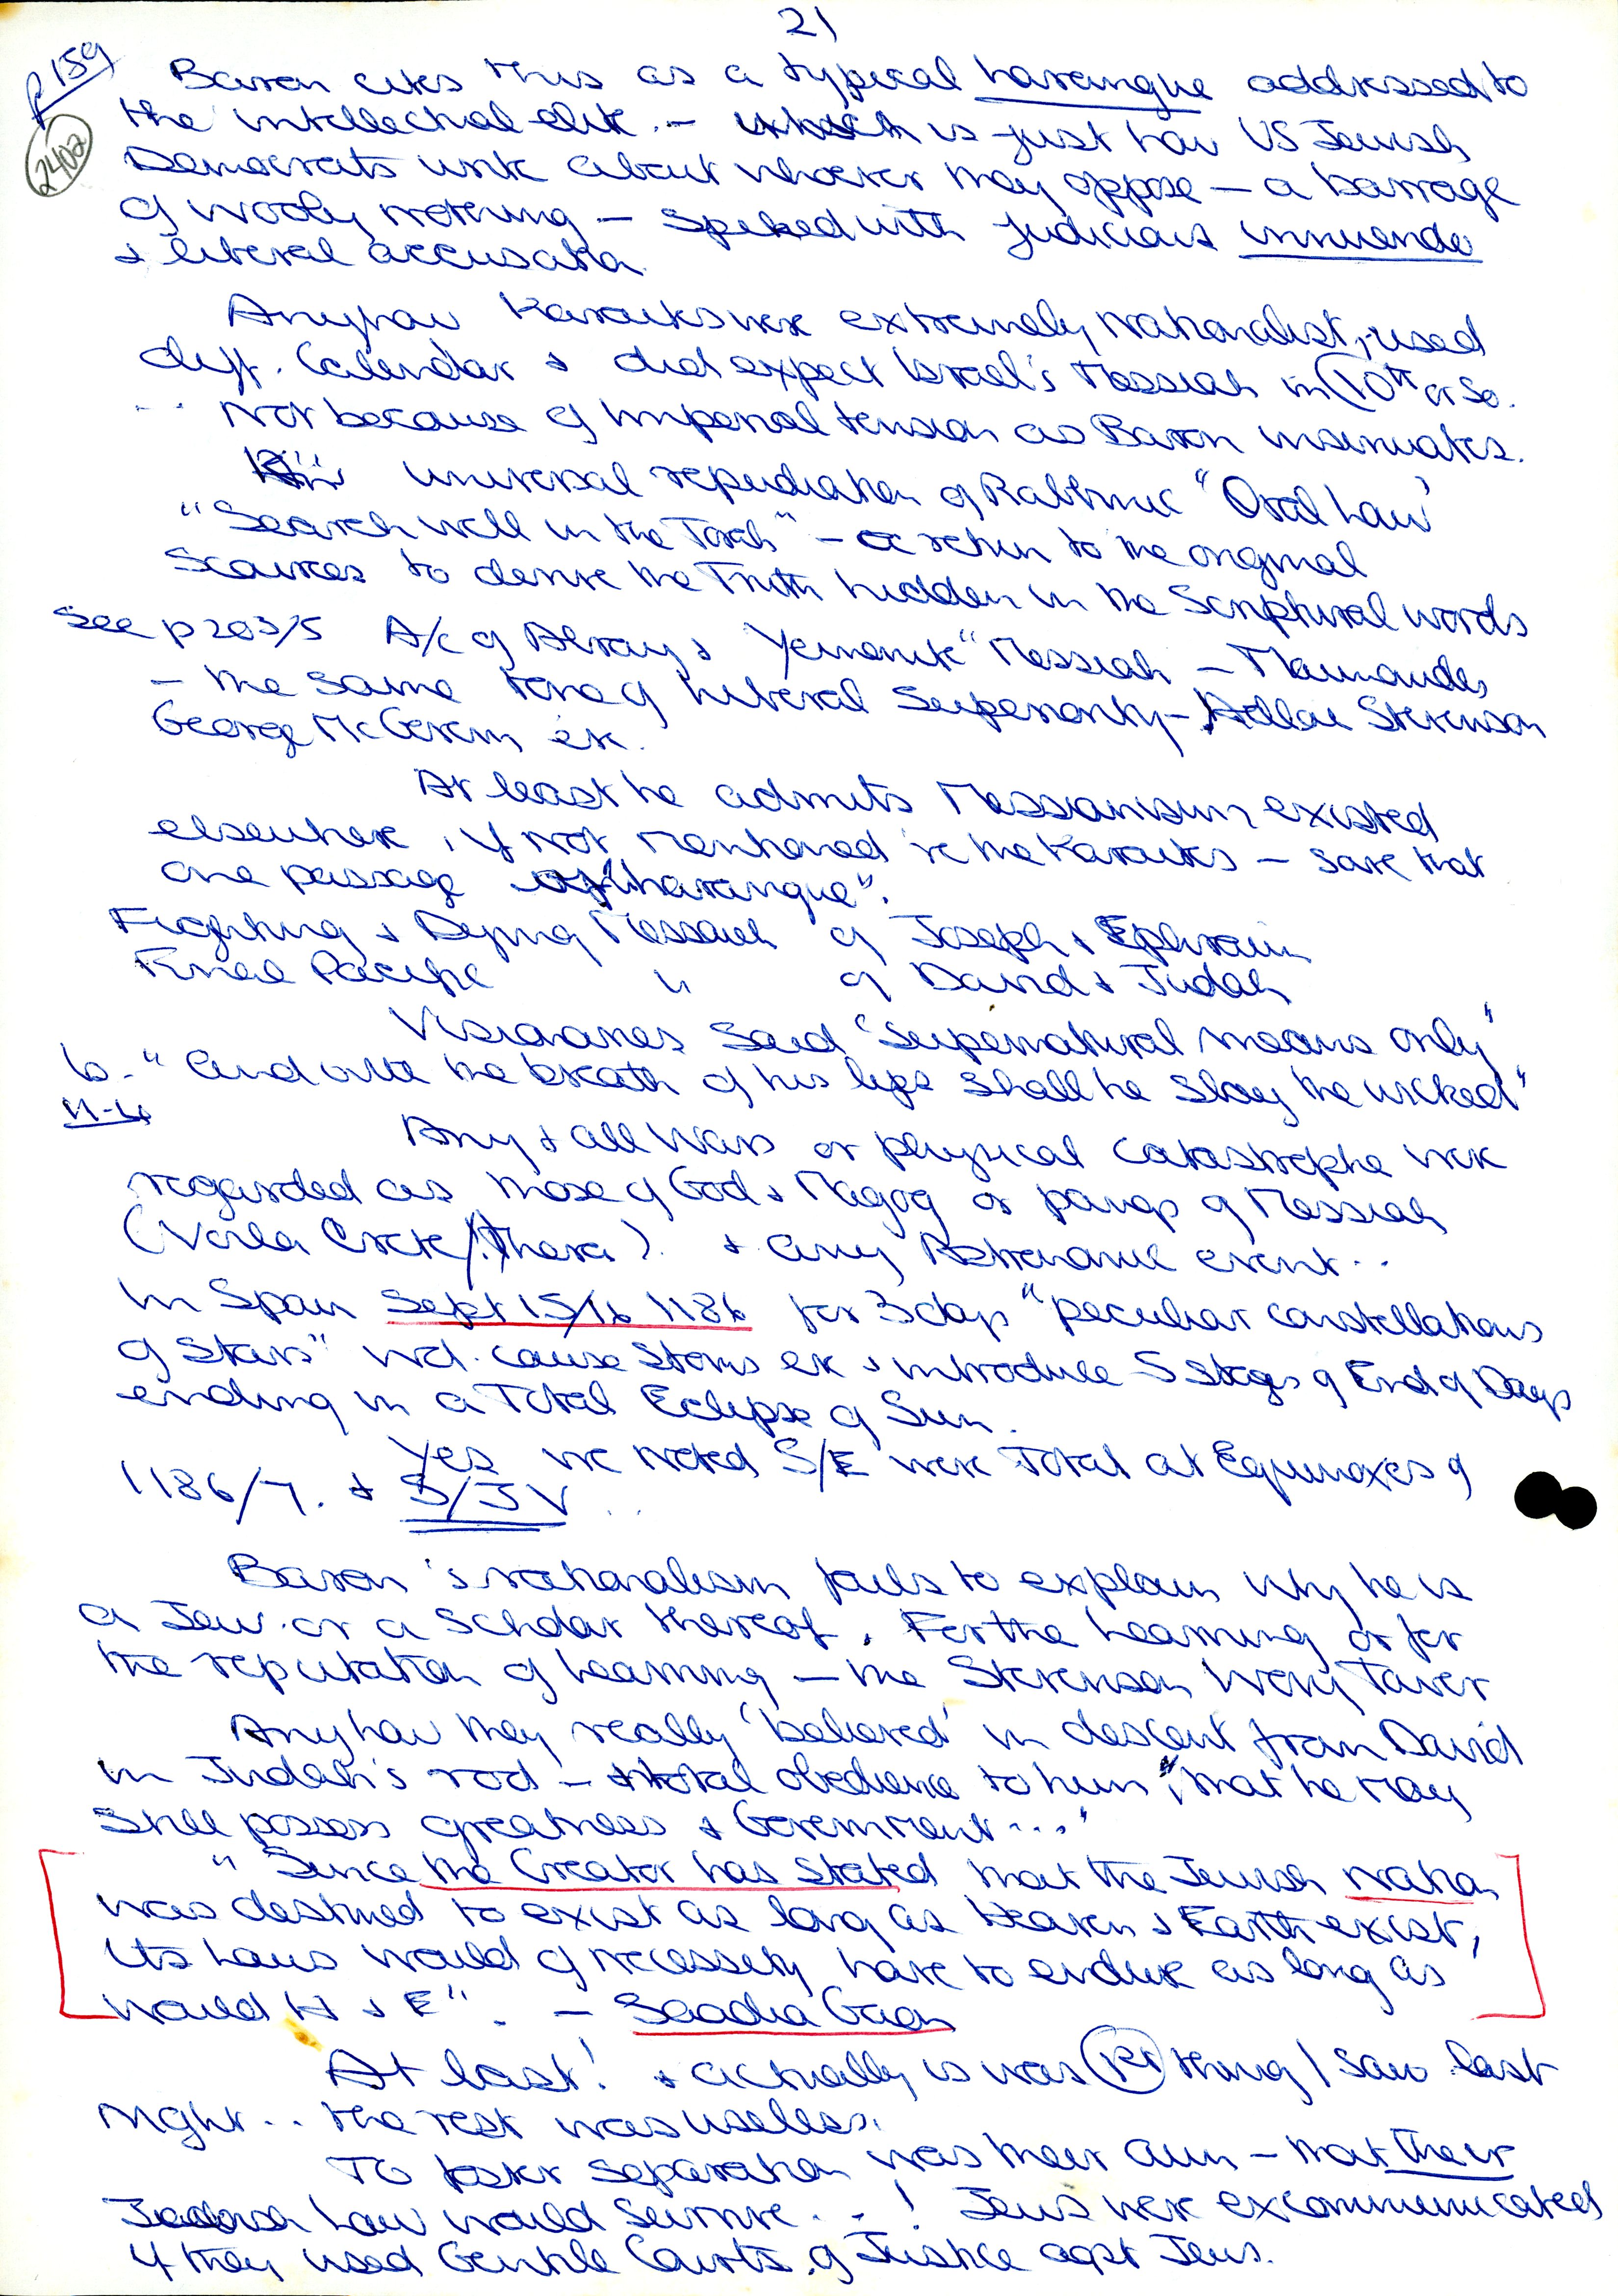 21
p 159
2402
Baron cites this as a typical harangue addressed to
the intellectual elite. – which is just how US Jewish
Democrats write about whoever may oppose – a barrage
of wooly nothing – spiked with judicious innuendo
& liberal accusation.
Anyhow Karaites were extremely nationalist, used
diff. Calendar & did expect Israel's Messiah in 10th or so.
... Not because of Imperial tension as Baron insinuates.
universal repudiation of Rabbinic "Oral Law"
"Search well in the Torah" – a return to the original
Sources to derive the Truth hidden in the Scriptural words
See p 203/5 A/c of Alroy & Yemenite "Messiah – Maimonides
– the same tone of liberal Superiority – Adlai Stevenson
George McGovern etc.
At least he admits Messianism existed
elsewhere, if not mentioned re the Karaites – save that
one passage of "harangue".
Fighting & Dying Messiah of Joseph & Ephraim
Final Pacific " of David & Judah
Visionaries said "Supernatural means only"
Is. "And with the breath of his lips shall he slay the wicked"
11-4
Any & all Wars or physical catastrophe were
regarded as those of God & Magog or pangs of Messiah
(Voila Crete/Thera). & any Astronomic event..
In Spain Sept 15/16 1186 for 3 days "peculiar constellations
of Stars" wd. cause Storms etc & introduce 5 stages of End of Days
ending in a Total Eclipse of Sun.
Yes we noted S/E were Total at Equinoxes of
1186/7. & S/J V ..
Baron's rationalism fails to explain why he is
a Jew. or a Scholar thereof. For the Learning or for
the reputation of Learning – the Stevenson Ivory Tower
Anyhow they really 'believed' in descent from David
in Judah's rod – & total obedience to him, "that he may
still possess greatness & Government..."
"Since the Creator has stated that the Jewish nation
was destined to exist as long as Heaven & Earth exist,
its Laws would of necessity have to endure as long as
would H & E". – Saadia Gaon
At last! & actually is was 1st thing I saw last
night.. the rest was useless.
To foster separation was their aim – that their
Law would survive. ..! Jews were excommunicated
if they used Gentile Courts of Justice agst Jews.